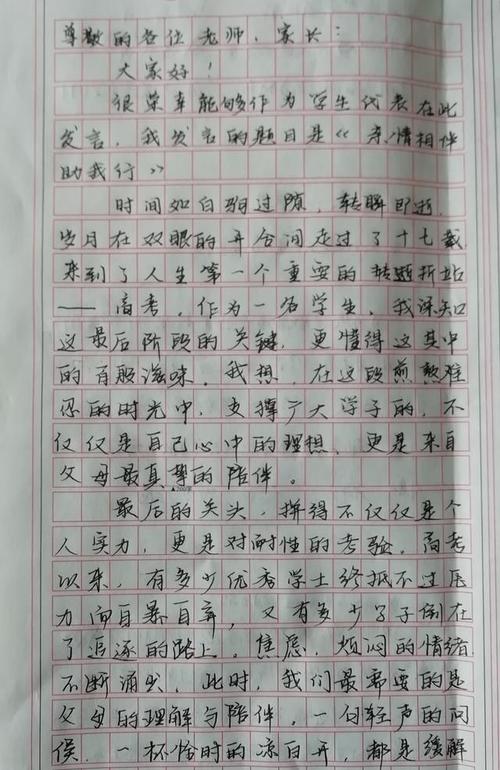 尊敬的各位老师、家长：
大家好！
很荣幸能够作为学生代表在此
发言，我发言的题目是《亲情相伴
助我行》
时间如白驹过隙，转瞬即逝，
岁月在双眼的开合间走过了十七载
来到了人生第一个重要的转折站
——高考，作为一名学生，我深知
这最后阶段的关键，更懂得这其中
的百般滋味。我想，在这段煎熬难
忍的时光中，支撑广大学子的，不
仅仅是自己心中的理想，更是来自
父母最真挚的陪伴。
最后的关头，拼得不仅仅是个
人实力，更是对耐性的考验。高考
以来，有多少优秀学士终抵不过压
力而自暴自弃，又有多少学子倒在
了追逐的路上。焦虑，烦闷的情绪
不断涌入，此时，我们最需要的是
父母的理解与陪伴，一句轻声的问
候，一杯恰时的凉白开，都是缓解